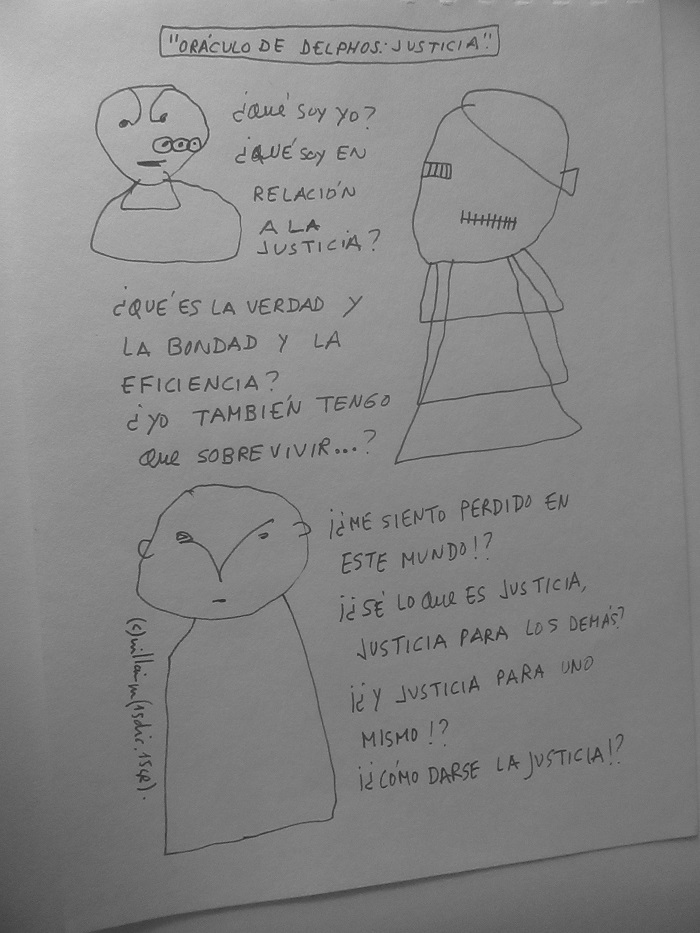 "ORÁCULO DE DELPHOS: JUSTICIA".
¿Qué soy yo?
¿QUÉ soy EN
RELACIÓN
A LA
JUSTICIA?
¿QUÉ ES LA VERDAD Y
LA BONDAD Y LA
EFICIENCIA?
¿YO TAMBIÉN TENGO
que SOBREVIVIR...?
¡¿ME SIENTO PERDIDO EN
ESTE MUNDO!?
¡¿SÉ LO que ES JUSTICIA,
JUSTICIA PARA LOS DEMÁS?
¡¿Y JUSTICIA PARA UNO
MISMO!?
¡¿CÓMO DARSE LA JUSTICIA!?
(c)